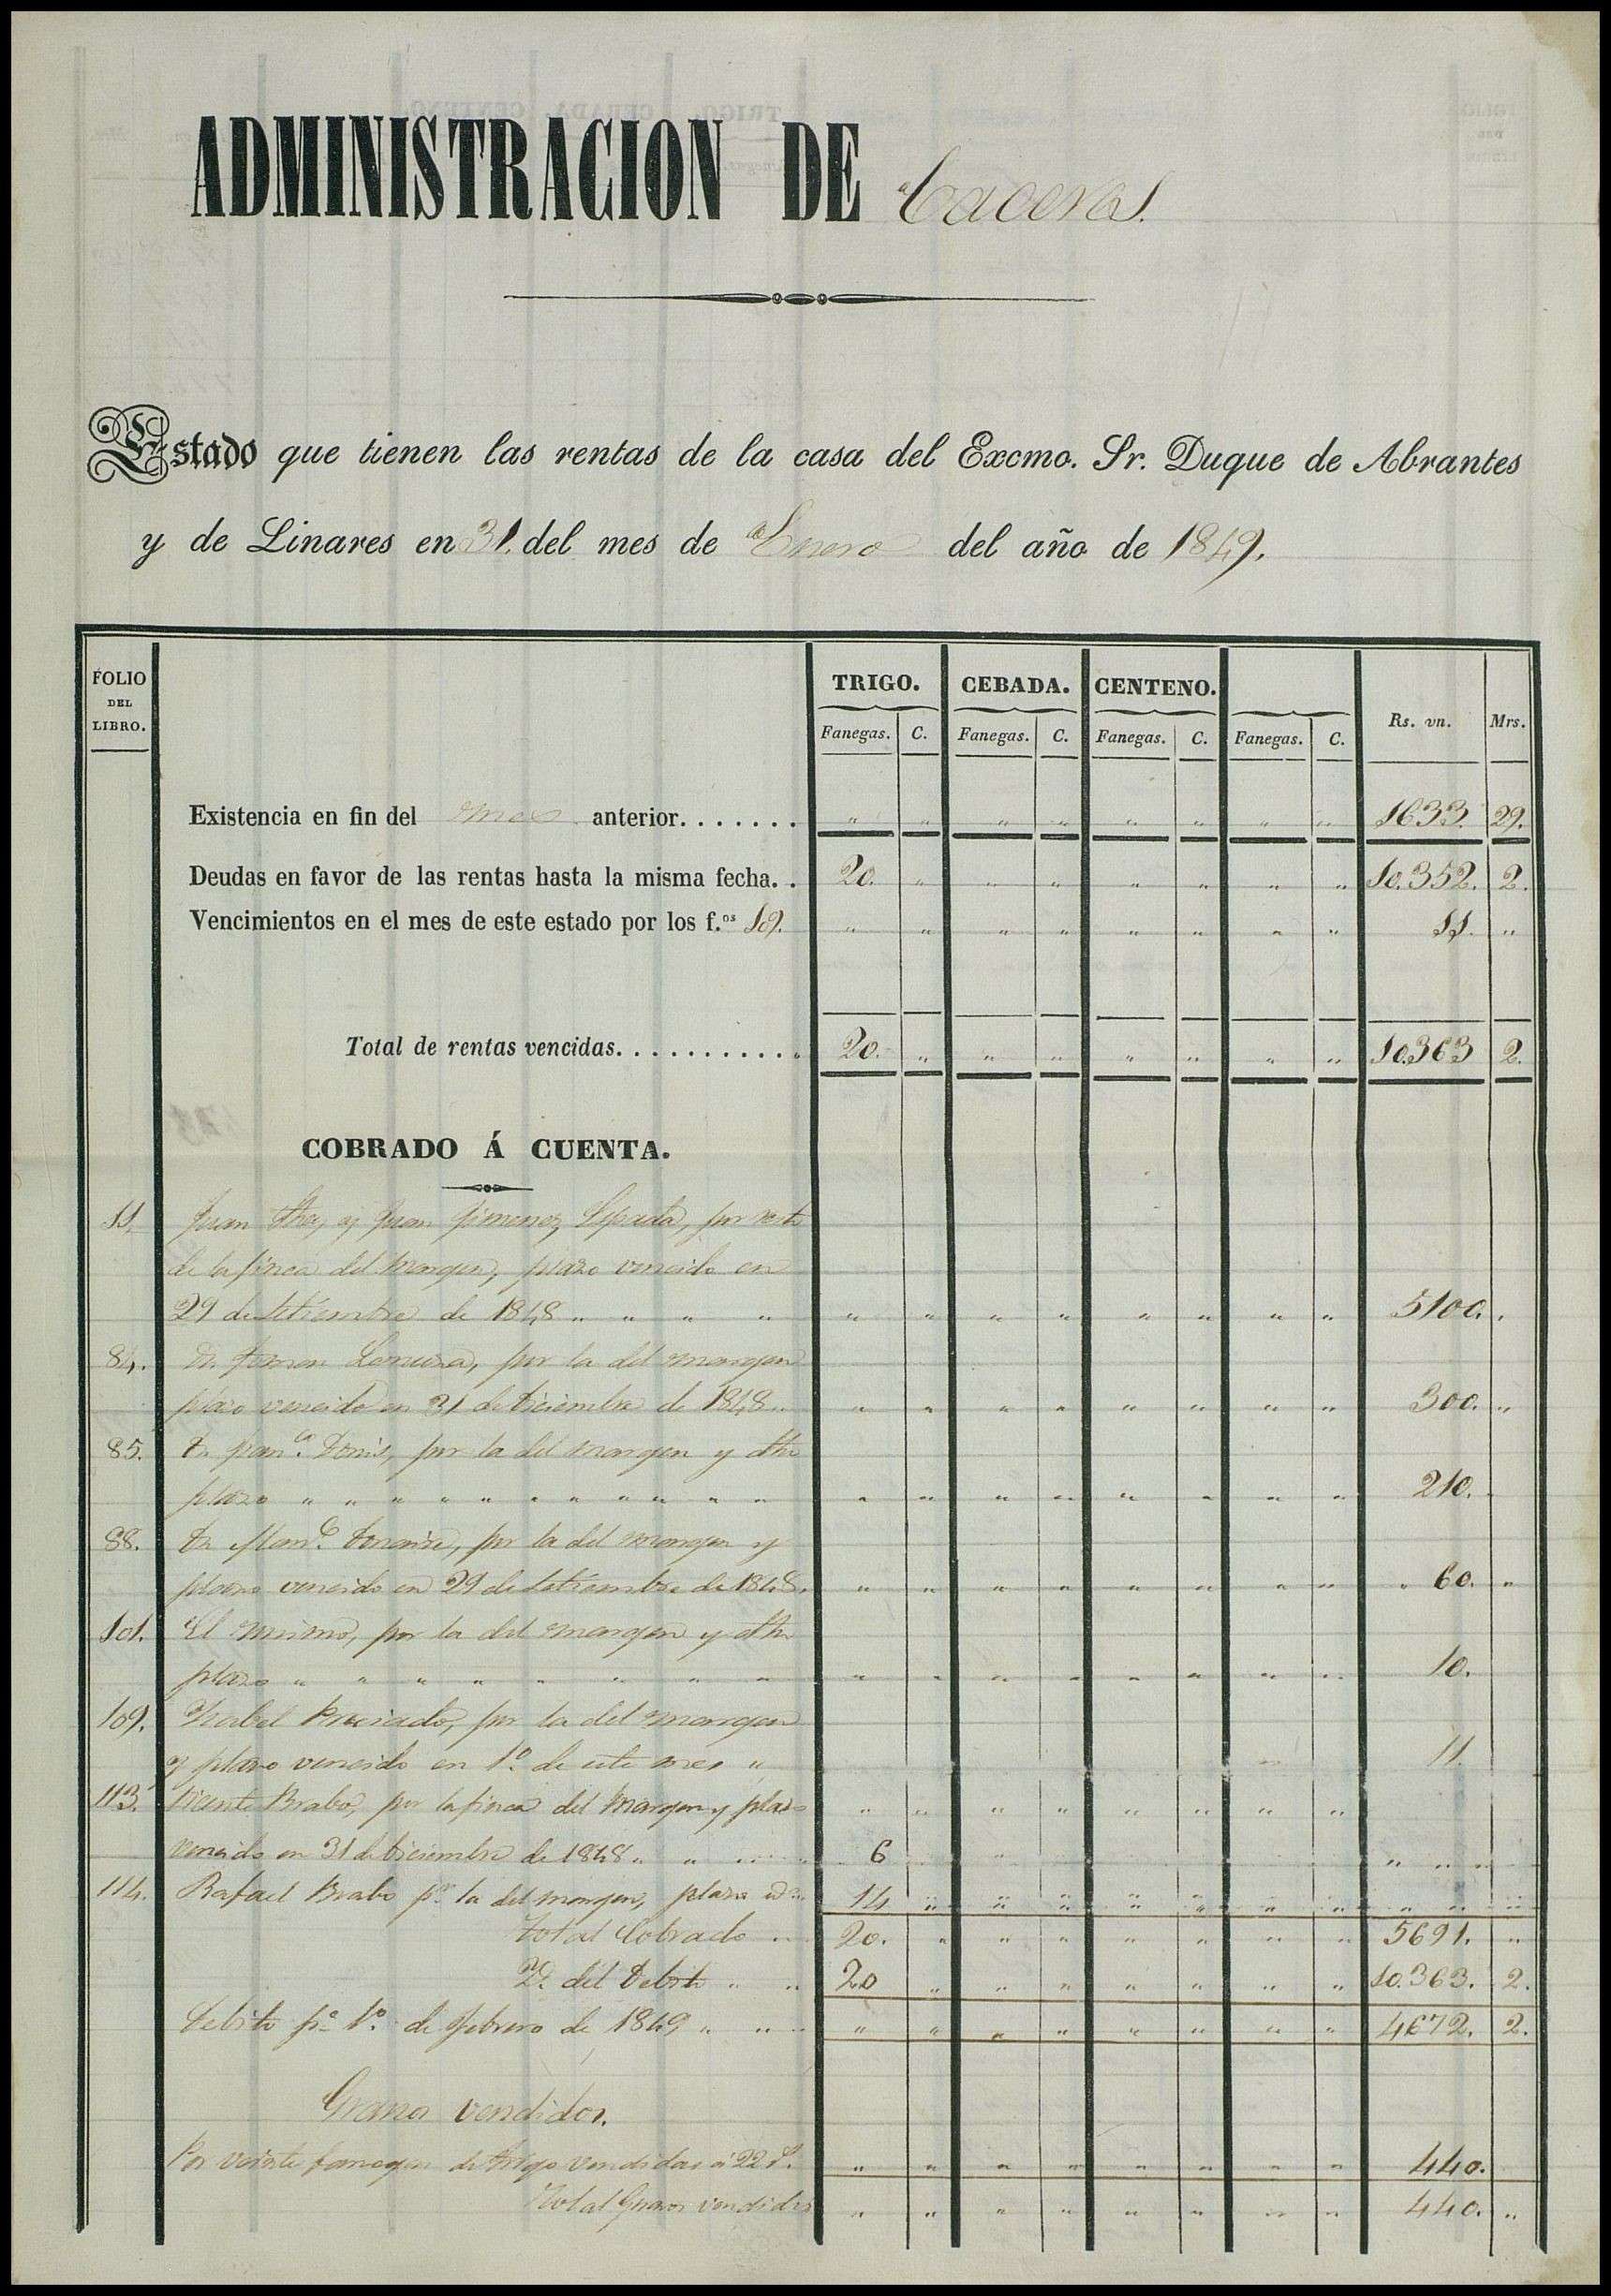 ADMINISTRACION DE Caceres.
Estado que tienen las rentas de la casa del Excmo. Sr. Duque de Abrantes
y de Linares en 31. del mes de Enero del año de 1849.
FOLIO DEL LIBRO. TRIGO. CEBADA. CENTENO. Rs. vn. Mrs.
Fanegas. C. Fanegas. C. Fanegas. C. Fanegas. C.
Existencia en fin del mes anterior....... " " " " " " " " 1633. 29.
Deudas en favor de las rentas hasta la misma fecha.. 20. " " " " " " " 10.352. 2.
Vencimientos en el mes de este estado por los f.os 109. " " " " " " " " 11. "
Total de rentas vencidas............ 20. " " " " " " " 10.363 2.
COBRADO Á CUENTA.
11. Juan y Juan Jimenez por renta
de la finca del margen, plazo vencido en
29 de Setiembre de 1848 " " " " " " " " " " " " 5100.
84. por la del margen
plazo vencido en 31 de Diciembre de 1848 " " " " " " " " " 300. "
85. por la del margen y dho
plazo " " " " " " " " " " " " " " " " " " " 210.
88. por la del margen y
plazo vencido en 29 de Setiembre de 1848. " " " " " " " " 60. "
101. El mismo, por la del margen y dho
plazo " " " " " " " " " " " " " " " " 10.
109. Isabel Preciado, por la del margen
y plazo vencido en 1º. de este mes " 11.
113. Vicente Brabo, por la finca del margen y plazo " " " " " " " "
vencido en 31 de Diciembre de 1848 " " " 6 " " "
114. Rafael Brabo pr. la del margen, plazo id 14 " " " " " " " " " "
Total Cobrado " 20. " " " " " " " 5691. "
Yd. del Debito " " 20 " " " " " " " 10.363. 2.
Debito pª 1º. de Febrero de 1849 " " " " " " " " " " 4672. 2.
Granos vendidos.
Por veinte fanegas de trigo vendidas á 22 " " " " " " " " 440.
Total Granos vendidos " " " " " " " " 440. "